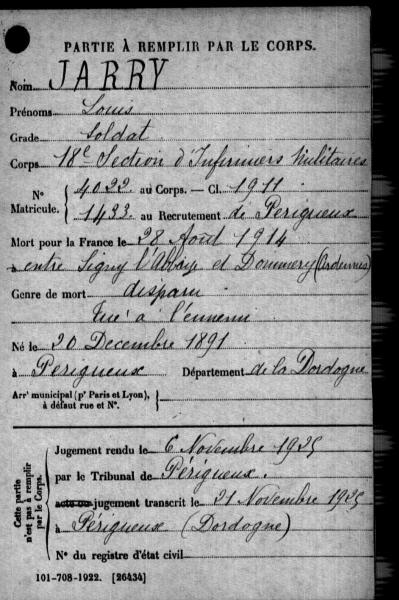 PARTIE À REMPLIR PAR LE CORPS.
Nom JARRY
Prénoms Louis
Grade Soldat
Corps 18e Section d'Infirmiers Militaires
N° Matricule. { 4022 au Corps. — Cl. 1911
1433 au Recrutement de Périgueux
Mort pour la France le 28 Août 1914
à entre Signy l'Abbaye et Dommery (Ardennes)
Genre de mort disparu
Tué à l'ennemi
Né le 20 Decembre 1891
à Perigueux Département de la Dordogne
Arrt municipal (pr Paris et Lyon), à défaut rue et N°. {
Cette partie n'est pas à remplir par le Corps.
Jugement rendu le 6 Novembre 1925
par le Tribunal de Périgueux.
acte ou jugement transcrit le 21 Novembre 1925
à Périgueux (Dordogne)
N° du registre d'état civil
101-708-1922. [26434]